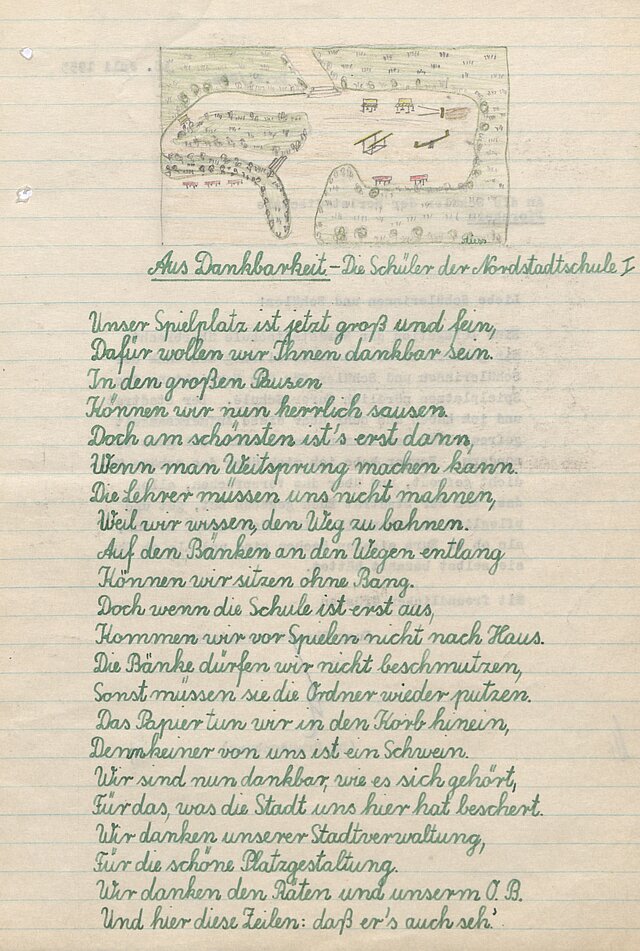 Aus Dankbarkeit.-Die Schüler der Nordstadtschule I
Unser Spielplatz ist jetzt groß und fein,
Dafür wollen wir Ihnen dankbar sein.
In den großen Pausen
Können wir nun herrlich sausen.
Doch am schönsten ist's erst dann,
Wenn man Weitsprung machen kann.
Die Lehrer müssen uns nicht mahnen,
Weil wir wissen, den Weg zu bahnen.
Auf den Bänken an den Wegen entlang
Können wir sitzen ohne Bang.
Doch wenn die Schule ist erst aus,
Kommen wir vor Spielen nicht nach Haus.
Die Bänke dürfen wir nicht beschmutzen,
Sonst müssen sie die Ordner wieder putzen.
Das Papier tun wir in den Korb hinein,
Denn keiner von uns ist ein Schwein.
Wir sind nun dankbar, wie es sich gehört,
Für das, was die Stadt uns hier hat beschert.
Wir danken unserer Stadtverwaltung,
Für die schöne Platzgestaltung.
Wir danken den Räten und unserm O.B.
Und hier diese Zeilen: daß er's auch seh'.